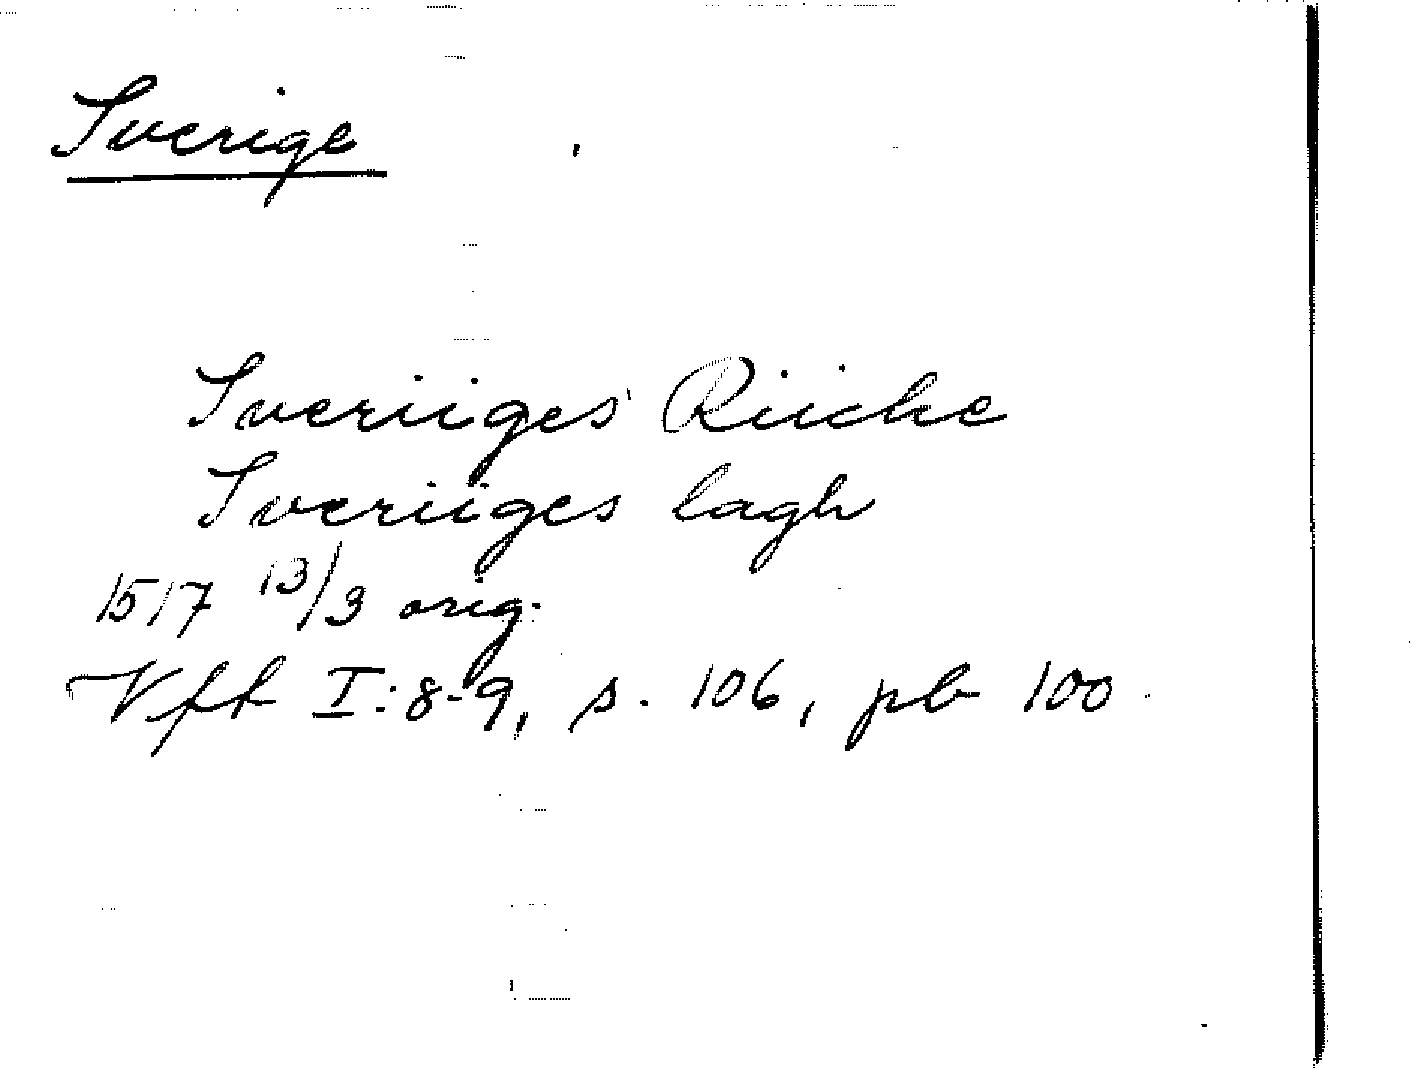 Sverige
Sveriiges Riiche
Sveriiges lagh
1517 13/3 orig.
Vff I:8-9, s. 106, pb 100